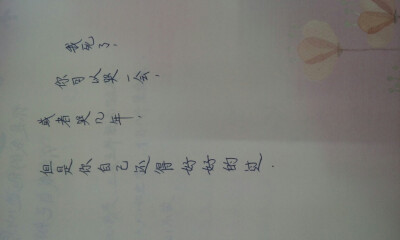 我死了。
你可以哭一会，
或者哭几年，
但是你自己还得好好的过．